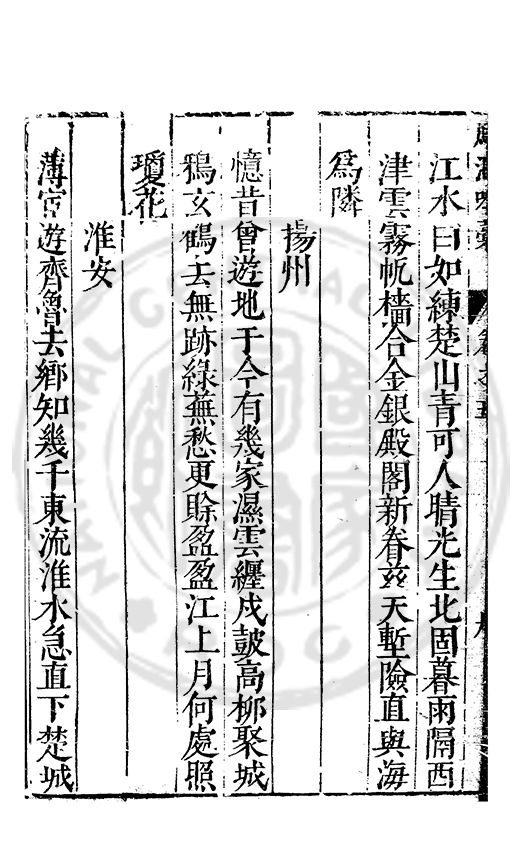 江水白如練楚山青可人晴光生北固暮雨隔西
津雲霧帆檣合金銀殿閣新眷茲天塹險直與海
為隣
揚州
憶昔曾遊地于今有幾家濕雲纏戍鼓高柳聚城
鴉玄鶴去無跡綠蕪愁更賒盈盈江上月何處照
瓊花
淮安
薄宦遊齊魯去鄉知幾千東流淮水急直下楚城